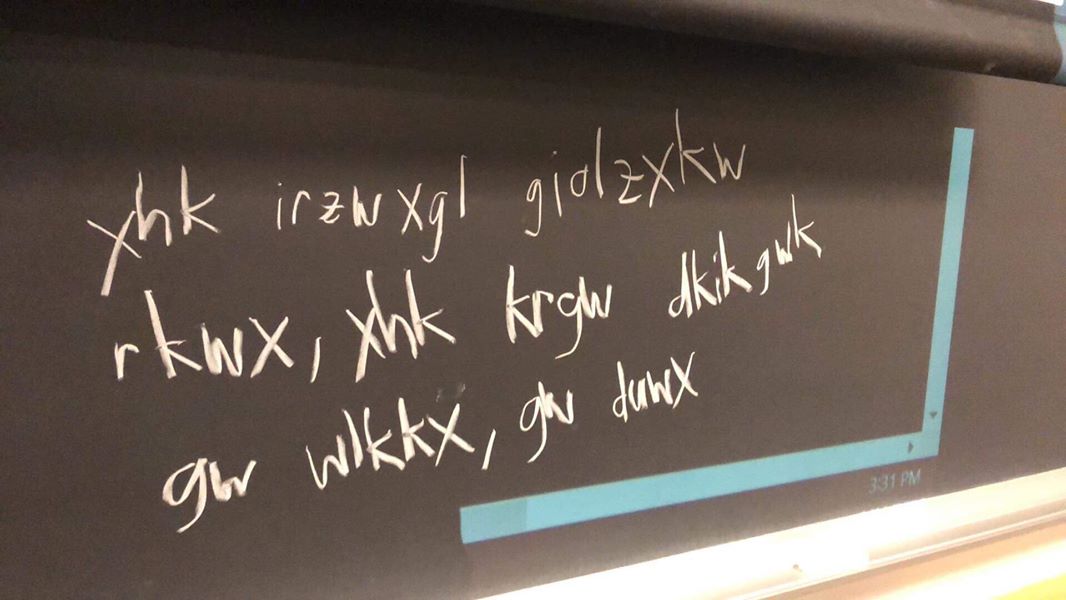 xhk irzwxgl giolzxkw
rkwx, xhk krgw dkikgwk
gw wlkkx, gw duwx
3:31 PM